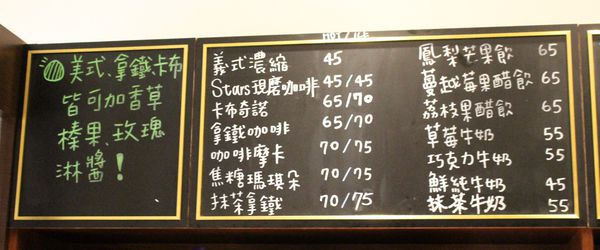 美式、拿鐵、卡布
皆可加香草
榛果 玫瑰
淋醬!
HOT / ICE
義式濃縮 45
Stars現磨咖啡 45/45
卡布奇諾 65/70
拿鐵咖啡 65/70
咖啡摩卡 70/75
焦糖瑪琪朵 70/75
抹茶拿鐵 70/75
鳳梨芒果飲 65
蔓越莓果醋飲 65
荔枝果醋飲 65
草莓牛奶 55
巧克力牛奶 55
鮮純牛奶 45
抹茶牛奶 55